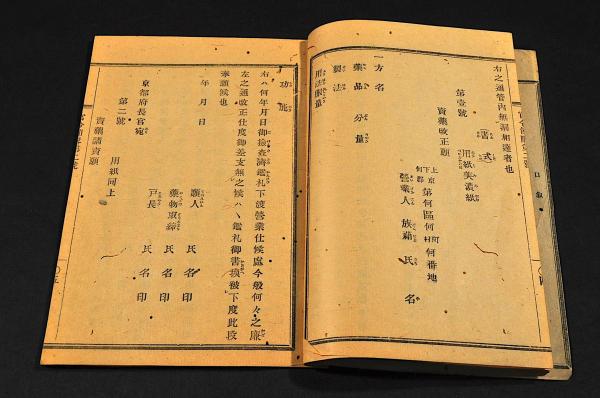 右之通管内無漏相達者也
書式
第壹號 用紙美濃紙
賣藥改正願
上京
下京
何郡
第何區何町
村
何番地
營業人 族籍 氏名
一方名
藥品 分量
製法
用法服量
功能
右ハ何年月日御檢査濟鑑札下渡營業仕候處今般何々之廉
左之通改正仕度御差支無之候ハヽ鑑札御書換被下度此段
奉願候也
年月日
願人 氏名印
藥物取締 氏名印
戸長 氏名印
京都府長官宛
第二號 用紙同上
賣藥請賣願